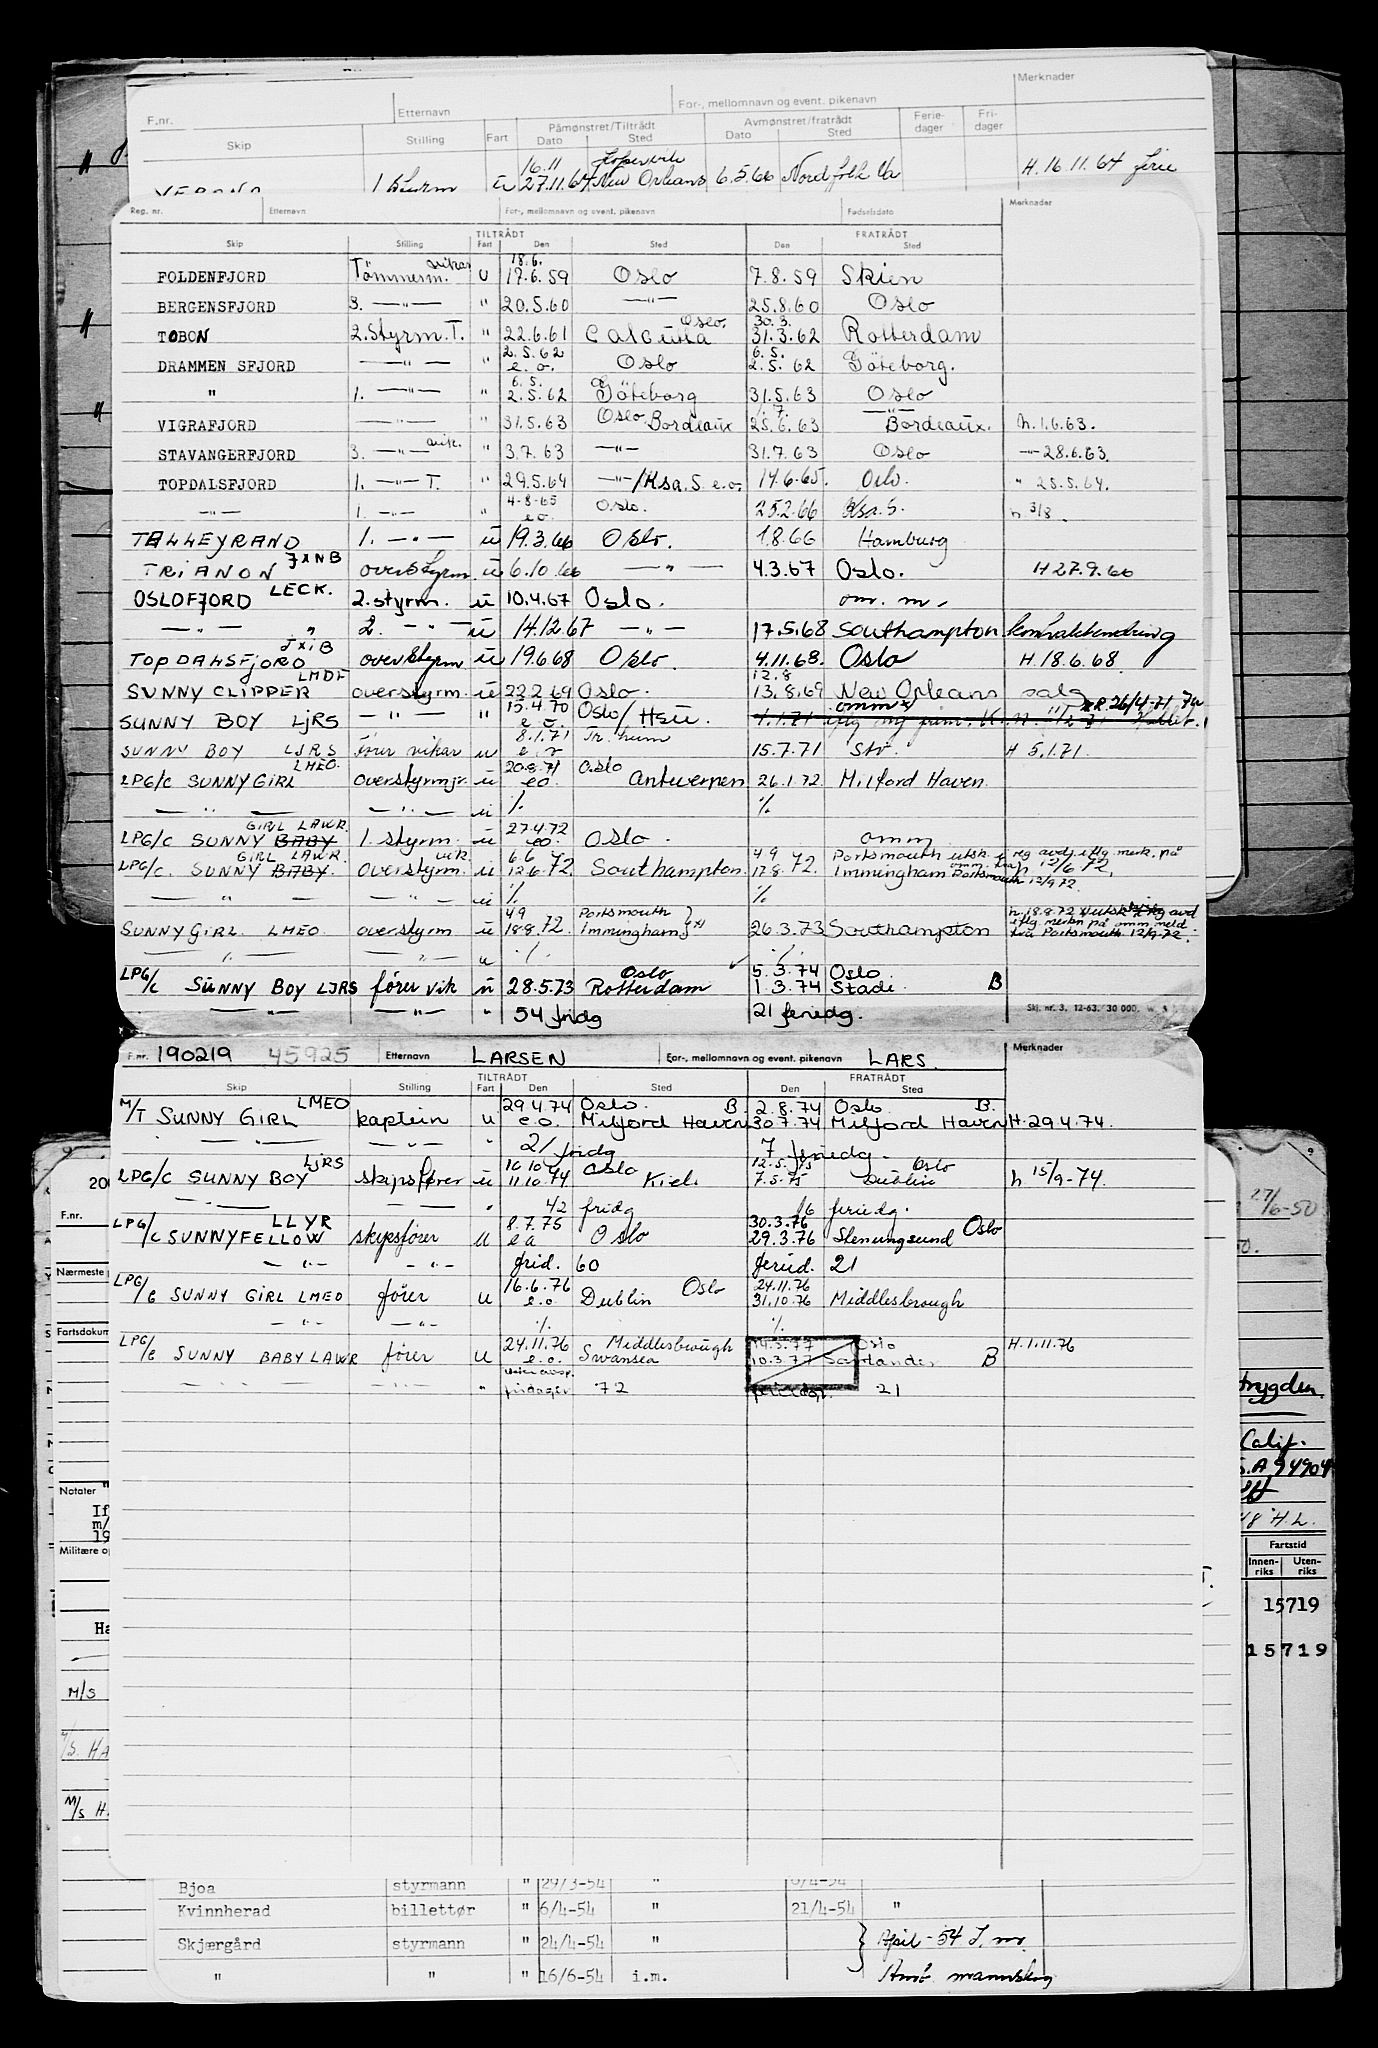 Merknader
Etternavn
For-, mellomnavn og event. pikenavn
F.nr.
Skip Stilling Fart Påmønstret/Tiltrådt Dato Sted Avmønstret/fratrådt Dato Sted Ferie-dager Fri-dager
16.11
1 styrm ü 27.11.64 New Orleans 6.5.66 Nordfolk Va H. 16.11.64 ferie
Reg. nr. Etternavn For-, mellomnavn og event. pikenavn Fødselsdato Merknader
TILTRÅDT FRATRÅDT
Skip Stilling Fart Den Sted Den Sted
18.6.
FOLDENFJORD Tömmerm. vikar u 17.6.59 Oslo 7.8.59 Skien
BERGENSFJORD 3. —"— " 20.5.60 —"— 25.8.60 Oslo
Oslo. 30.3.
TOBON 2. styrm. T. " 22.6.61 Calcutta 31.3.62 Rotterdam
2.5.62 6.5.
DRAMMEN SFJORD —"— " e.o. Oslo 2.5.62 Göteborg.
6.5.
" 1. —"— " 2.5.62 Göteborg 31.5.63 Oslo
1.7. —"—
VIGRAFJORD —"— " 31.5.63 Oslo Bordeaux 25.6.63 Bordeaux. h. 1.6.63.
STAVANGERFJORD 3. —"— vik. " 3.7.63 —"— 31.7.63 Oslo —"— 28.6.63.
TOPDALSFJORD 1. —"— T. " 29.5.64 —"— /Ksa. S. e.o. 14.6.65. Oslo. " 28.5.64.
4-8-65
—"— 1. —"— " eo. Oslo. 25.2.66 Ksa. S. h. 3/8.
TALLEYRAND 1. —"— ü 19.3.66 Oslo. 1.8.66 Hamburg
TRIANON JXNB overstyrm ü 6.10.66 —"— 4.3.67 Oslo. H 27.9.66
OSLOFJORD LECK. 2. styrm. ü 10.4.67 Oslo. om. m.
—"— " 2. —"— ü 14.12.67 —"— 17.5.68 Southampton kontraktendring
TOPDALSFJORD JXIB overstyrm ü 19.6.68 Oslo. 4.11.68. Oslo H. 18.6.68.
LMDF 12.8
SUNNY CLIPPER overstyrm. ü 22.2.69 Oslo. 13.8.69 New Orleans salg
15.4.70 omm
SUNNY BOY LJRS —"— " e.o. Oslo/Hsü. 1.1.71
8.1.71 Tr. heim
SUNNY BOY LJRS förer vikar u 15.7.71 Stv. H 5.1.71.
LMEO. 20.8.71 Oslo
LPG/C SUNNY GIRL overstyrm jr. ü eo. Antwerpen 26.1.72 Milford Haven.
—"— —"— ü % %
GIRL LAWR. 27.4.72
LPG/C SUNNY BABY 1. styrm. ü eo. Oslo. omm
GIRL LAWR. vik. 6.6 4 9 Portsmouth utsk. reg avd iflg. merk. på
LPG/C. SUNNY BABY. overstyrm. ü 12.6.72. Southampton. 17.8.72. Immingham omm. fra Portsmouth 12/6 72. 12/9 72.
—"— —"— ü % %
4 9 Portsmouth h. 18.8.72 utsk reg avd
SUNNY GIRL. LMEO. overstyrm ü 18.8.72. Immingham 26.3.73 Southampton iflg merkn på omm meld fra Portsmouth 12/9.72.
—"— —"— u % %
Oslo 5.3.74 Oslo.
LPG/C SUNNY BOY LJRS förer vik ü 28.5.73 Rotterdam 1.3.74 Stade. B
—"— —"— " 54 fridg 21 feriedg. Skj. nr. 3. 12-63. 30 000. W
F.nr. 190219 45925 Etternavn LARSEN For-, mellomnavn og event. pikenavn LARS. Merknader
TILTRÅDT FRATRÅDT
Skip Stilling Fart Den Sted Den Sted
LMEO 29.4.74 Oslo. B. 2.8.74 Oslo. B.
M/T SUNNY GIRL kaptein u e.o. Milford Haven 30.7.74 Milford Haven H. 29.4.74.
—"— —"— " 21 fridg 7 feriedg.
LJRS 10.10.74 Oslo 12.5.75 Oslo
LPG/C SUNNY BOY skipsfører ü 11.10.74 Kiel. 7.5.75 Dublin h 15/9-74.
—"— —"— " 42 fridg 16 feriedg.
LLYR 8.7.75 30.3.76
LPG/C SUNNYFELLOW skipsfører u ea Oslo 29.3.76 Stenungsund Oslo
—"— —"— frid. 60 feried. 21
16.6.76 Oslo 24.11.76
LPG/C SUNNY GIRL LMEO fører u e.o. Dublin 31.10.76 Middlesbrough
—"— —"— % %
24.11.76 Middlesbrough 14.3.77 Oslo H. 1.11.76
LPG/C SUNNY BABY LAWR fører u e.o. Swansea 10.3.77 B
—"— —"— " fridager 72 feriedgr. 21
Bjoa styrmann " 29/3-54 " 6/4-54
Kvinnherad billettør " 6/4-54 " 21/4-54 "
Skjærgård styrmann " 24/4-54 " April - 54
" " " 16/6-54 i.m.
20
F.nr.
Nærmeste
Fartsdokum
Notater
If
m/
19
Militære o
Ha
M/S
M/S. HA
M/S H.
27/6-50
trygden.
Calif.
S.A 94904
48 H.L.
Fartstid
Innen-riks Uten-riks
15719
15719